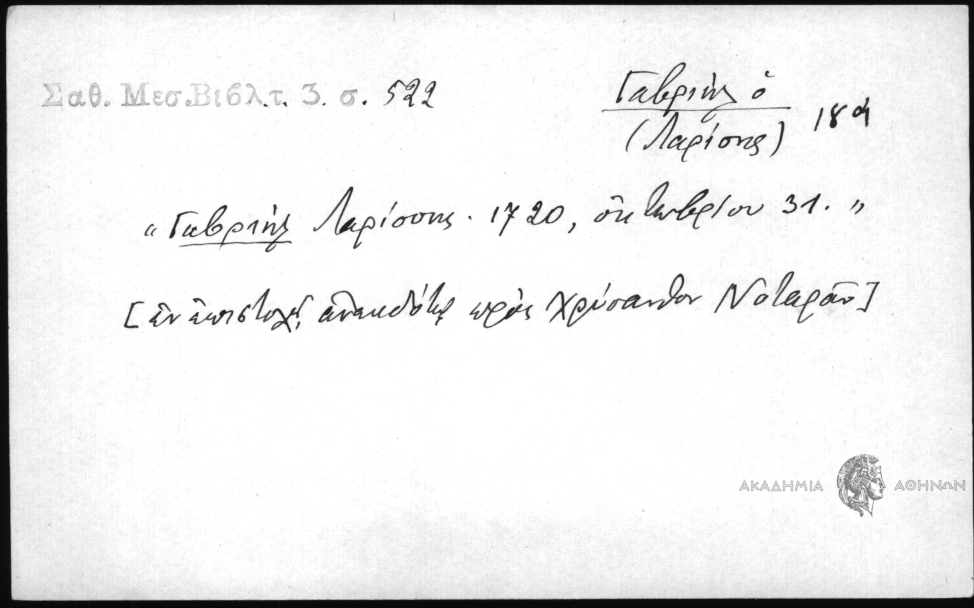 Σαθ. Μεσ. Βιβλ. τ. 3. σ. 522
Γαβριήλ ὁ
(Λαρίσης)
18
«Γαβριήλ Λαρίσσης. 1720, ὀκτωβρίου 31.»
[ἐν ἐπιστολῇ ἀνεκδότῳ πρὸς Χρύσανθον Νοταρᾶν]
ΑΚΑΔΗΜΙΑ ΑΘΗΝΩΝ